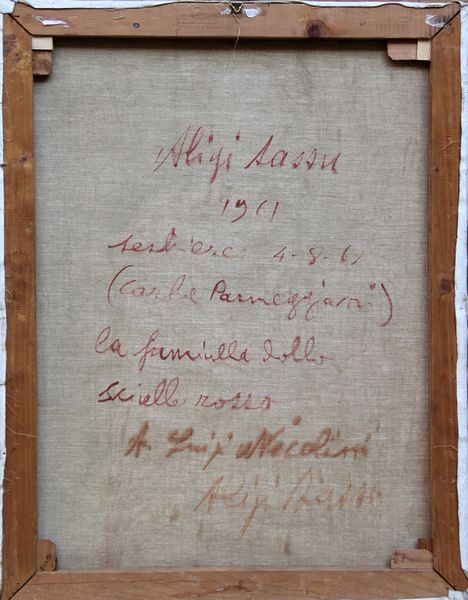 Aligi Sassu
1961
4-8-61
(Carla Parmeggiani)
la fanciulla dallo
scialle rosso
A Luigi Nicolini
Aligi Sassu